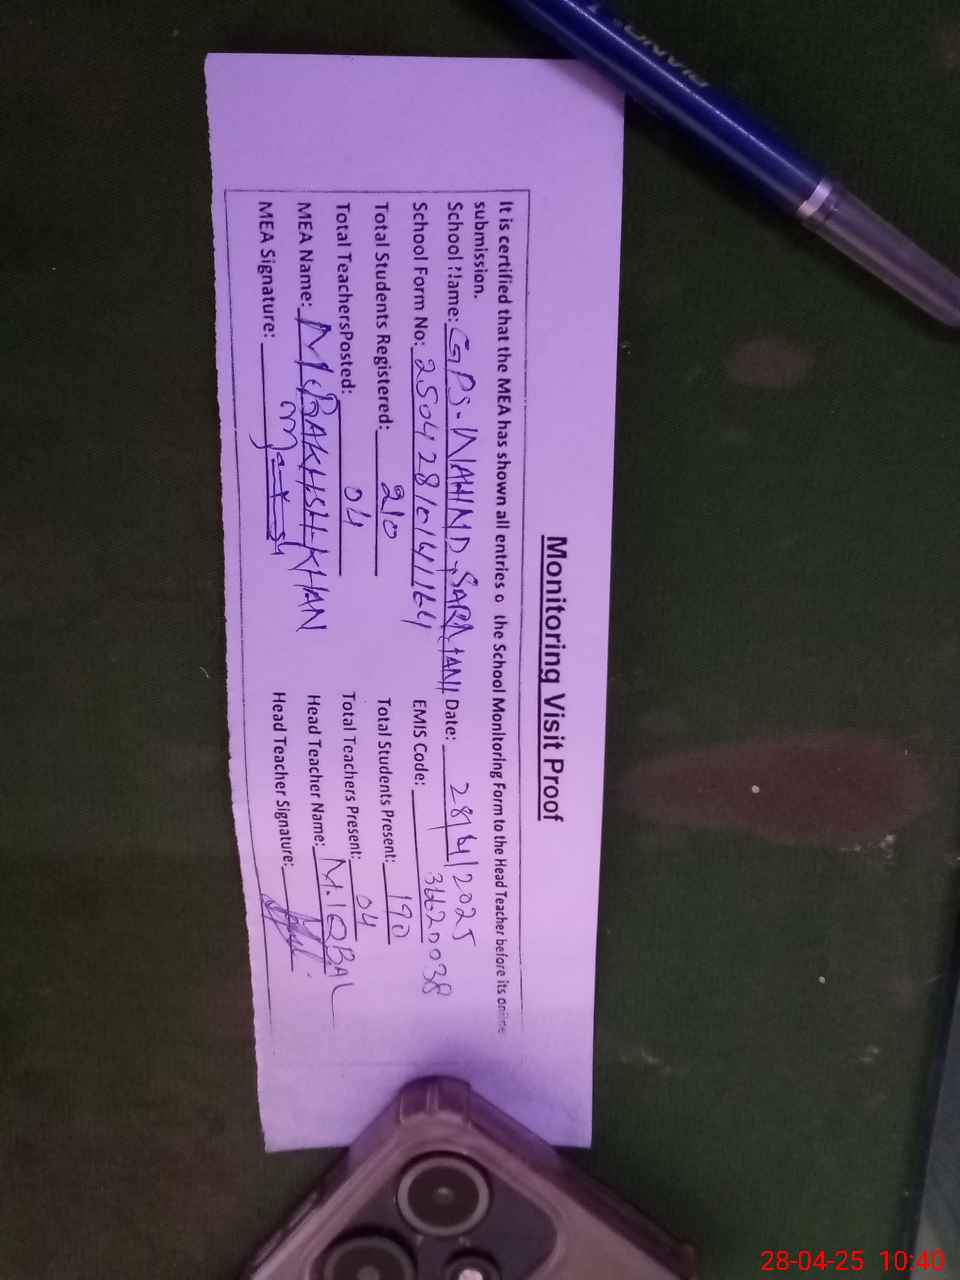 Monitoring Visit Proof
It is certified that the MEA has shown all entries o the School Monitoring Form to the Head Teacher before its online
submission.
School Name: GPS-WAHIND-SARMANI Date: 28/4/2025
School Form No: 250428/0141164 EMIS Code: 36620038
Total Students Registered: 210 Total Students Present: 190
Total TeachersPosted: 04 Total Teachers Present: 04
MEA Name: M.BAKHSH-KHAN Head Teacher Name: M.IQBAL
MEA Signature: Head Teacher Signature:
PIANO
28-04-25 10:40